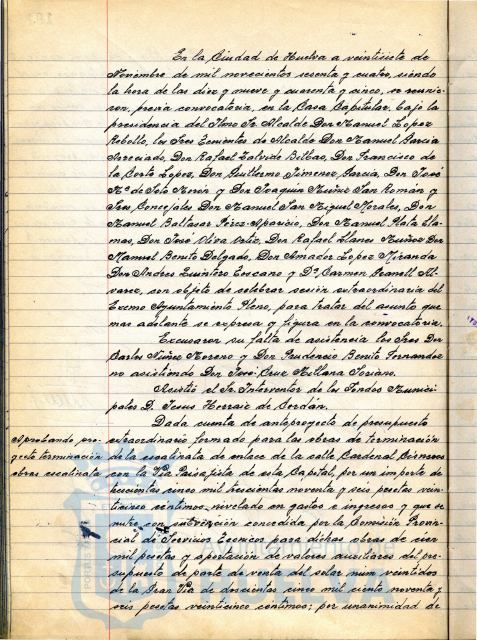 En la Ciudad de Huelva a veintisiete de
Noviembre de mil novecientos sesenta y cuatro, siendo
la hora de las diez y nueve y cuarenta y cinco, se reunie-
ron, previa convocatoria, en la Casa Capitular, bajo la
presidencia del Ilmo Sr. Alcalde Don Manuel Lopez
Rebollo, los Sres Tenientes de Alcalde Don Manuel Garcia
Don Rafael Bilbao, Don Francisco de
la Corte Lopez, Don Guillermo Jimenez Garcia, Don José
Mª de Soto Morón y Don Joaquin Nuñez San Román y
Sres Concejales Don Manuel San Miguel Morales, Don
Manuel Baltasar Pérez-Aparicio, Don Manuel Plata Lla-
mas, Don José Oliva Ortiz, Don Rafael Llanes Muñoz Don
Manuel Benito Delgado, Don Amador Lopez Miranda
Don Andres Quintero Toscano y Dª Carmen Al-
varez, con objeto de celebrar sesión extraordinaria del
Excmo Ayuntamiento Pleno, para tratar del asunto que
mas adelante se expresa y figura en la convocatoria.
Excusaron su falta de asistencia los Sres Don
Carlos Nuñez Moreno y Don Prudencio Benito Fernandez
no asistiendo Don José Cruz Soriano.
Asistió el Sr. Interventor de los Fondos Munici-
pales D. Jesus de Cerdán.
Dada cuenta de anteproyecto de presupuesto
Aprobando pro-
extraordinario formado para las obras de terminación
yecto terminación
de la escalinata de enlace de la calle Cardenal Cisneros
obras escalinata
con la Via Paisajista de esta Capital, por un importe de
trescientas cinco mil trescientas noventa y seis pesetas vein-
ticinco céntimos, nivelado en gastos e ingresos y que se
nutre con subvención concedida por la Comisión Provin-
cial de Servicios Tecnicos para dichas obras de cien
mil pesetas y aportación de valores auxiliares del pre-
supuesto de parte de venta del solar núm veintidos
de la Gran Via de doscientas cinco mil ciento noventa y
seis pesetas veinticinco centimos; por unanimidad de